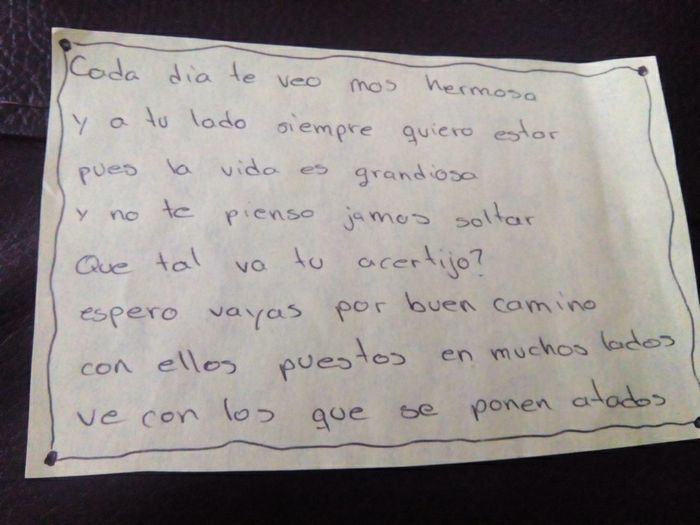 Cada dia te veo mas hermosa
y a tu lado siempre quiero estar
pues la vida es grandiosa
y no te pienso jamas soltar
Que tal va tu acertijo?
espero vayas por buen camino
con ellos puestos en muchos lados
ve con los que se ponen atados